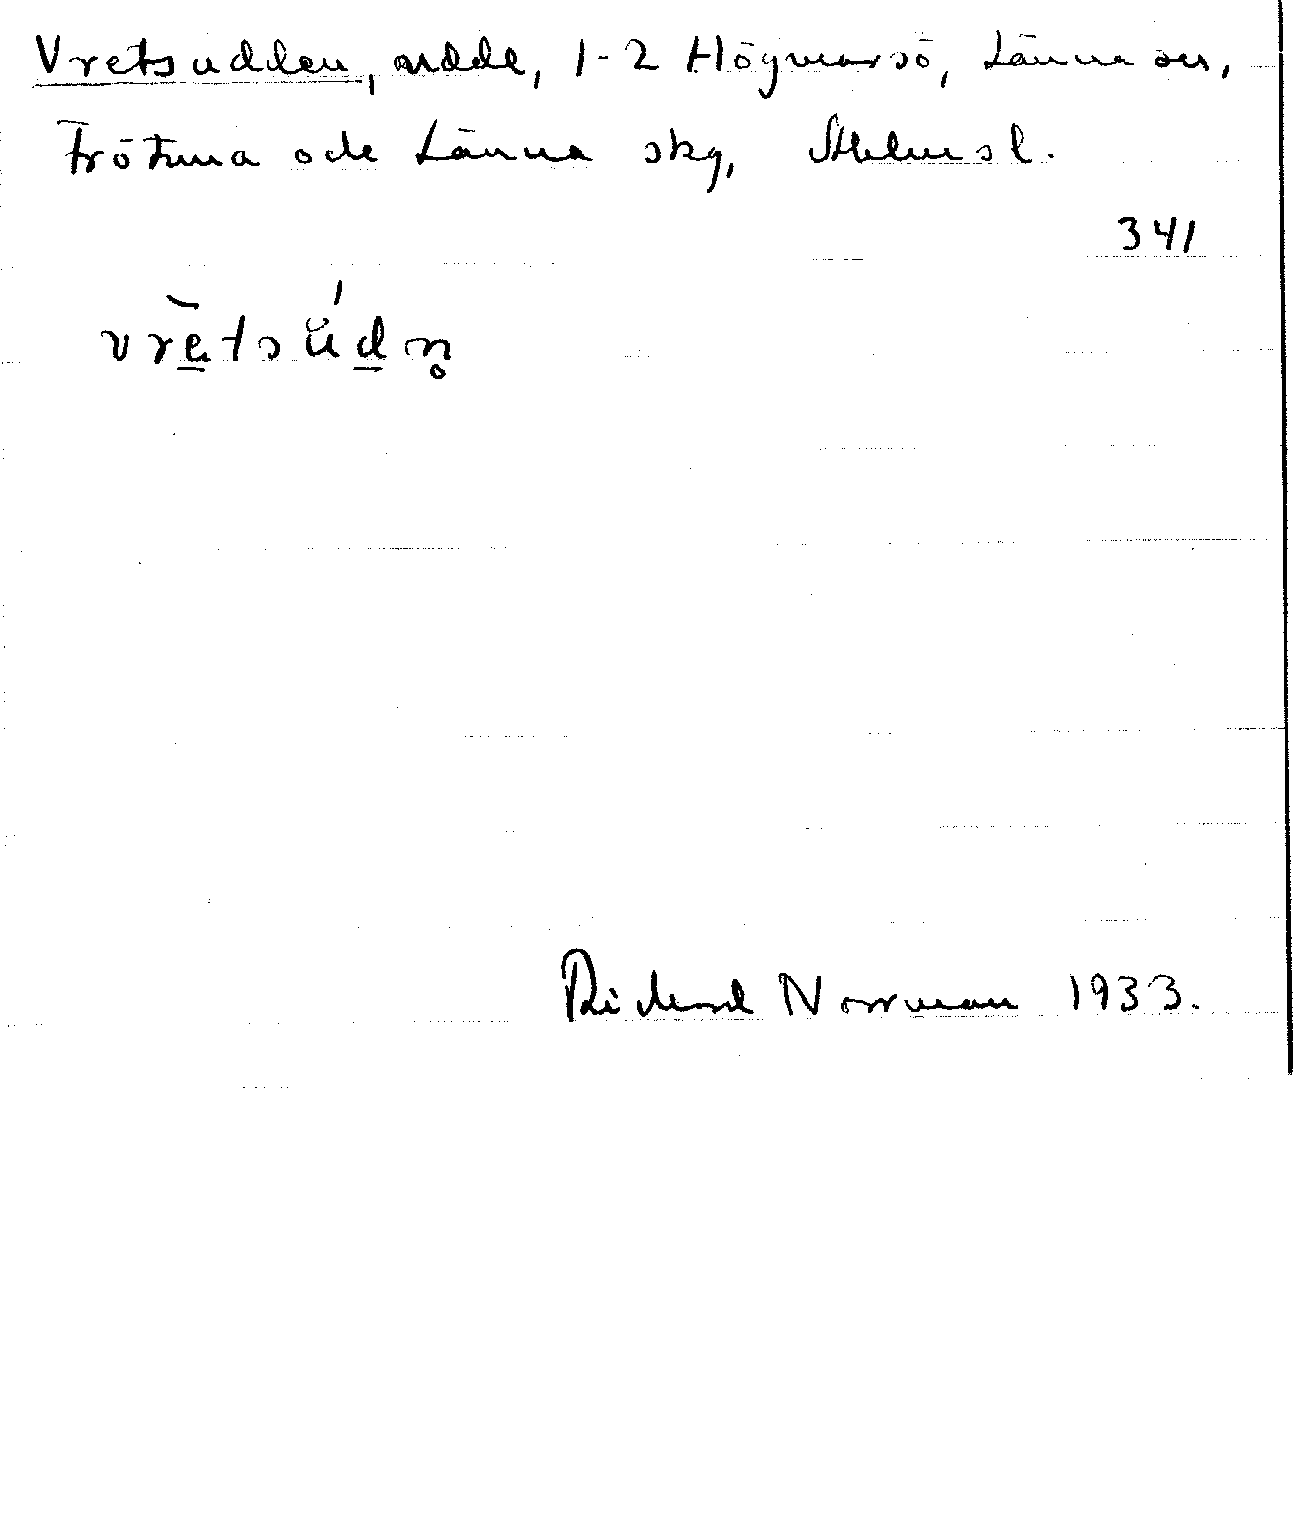 Vretsudden, udde, 1-2 Högmarsö, Länna sn,
Frötuna och Länna skg, Sthlmsl.
341
vrètsúdn̥
Richard Norrman 1933.